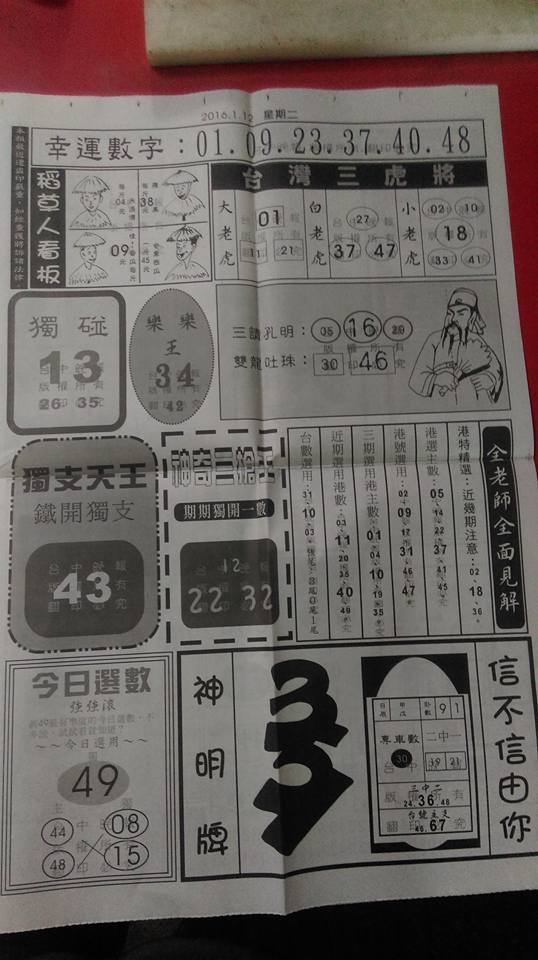 2016.1.12 星期二
幸運數字：01.09.23.37.40.48
本報嚴
稻草人看板
04
38
09
45
台灣三虎將
大老虎
01
11
21
白老虎
27
37
47
小老虎
02
10
18
33
41
獨碰
13
26 35
樂樂
王
34
42
三請孔明：05 16 20
雙龍吐珠：30 46
獨支天王
鐵開獨支
43
神奇三線王
期期獨開一數
12
22 32
全老師全面見解
港特精選：近幾期注意：02、18、36。
港選主數：05、14、22、37、41、45、
港號選用：02、09、17、31、46、47
三期選用港主數：01、04、10、19、35
近期選用港數：03、11、20、35、40、49
台數選用：31、10、03
今日選數
強強滾
～～今日選用～～
49
44
08
48
15
神明牌
信不信由你
日辰
甲戌
卦數
91
專車數
30
二中一
19
21
三中二
24.36.48
台號主支
46.67
台中晚報
版權所有
翻印必究